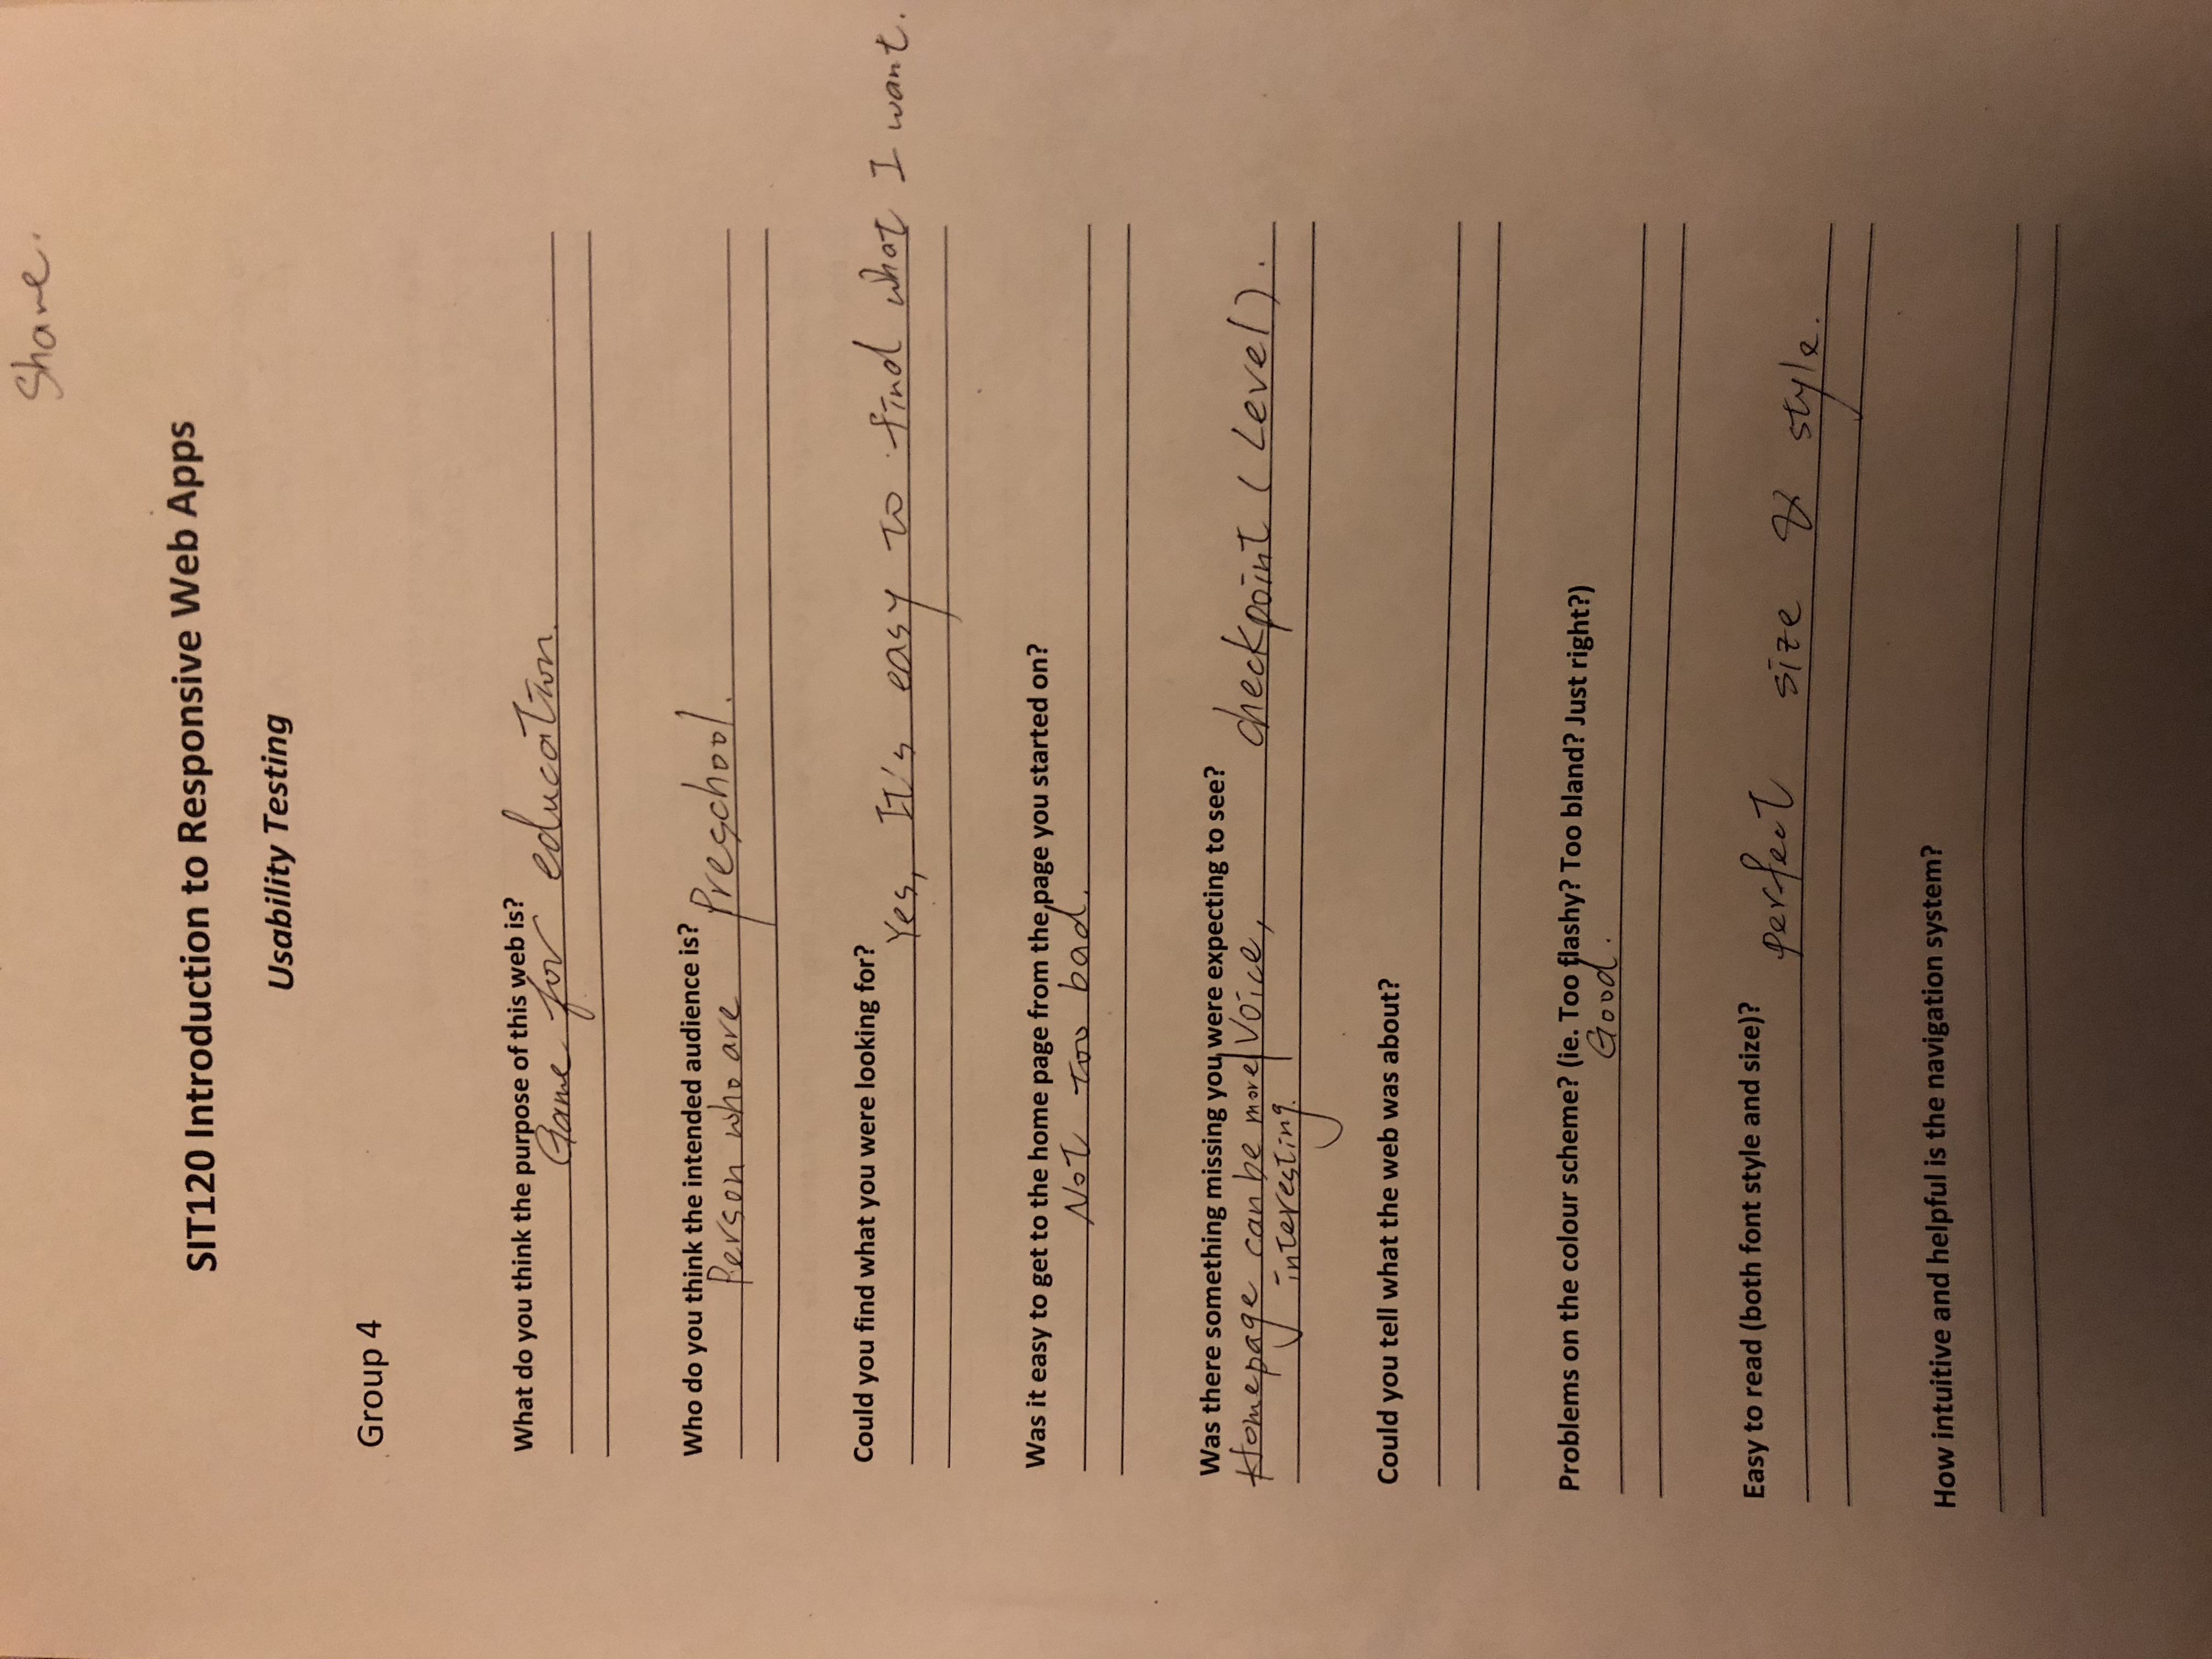 Shane.
SIT120 Introduction to Responsive Web Apps
Usability Testing
Group 4
What do you think the purpose of this web is?
Game for education.
Who do you think the intended audience is?
Person who are Preschool.
Could you find what you were looking for?
Yes, It's easy to find what I want.
Was it easy to get to the home page from the page you started on?
Not too bad.
Was there something missing you were expecting to see?
Homepage can be more Voice, checkpoint (Level).
interesting.
Could you tell what the web was about?
Problems on the colour scheme? (ie. Too flashy? Too bland? Just right?)
Good.
Easy to read (both font style and size)?
perfect size & style.
How intuitive and helpful is the navigation system?